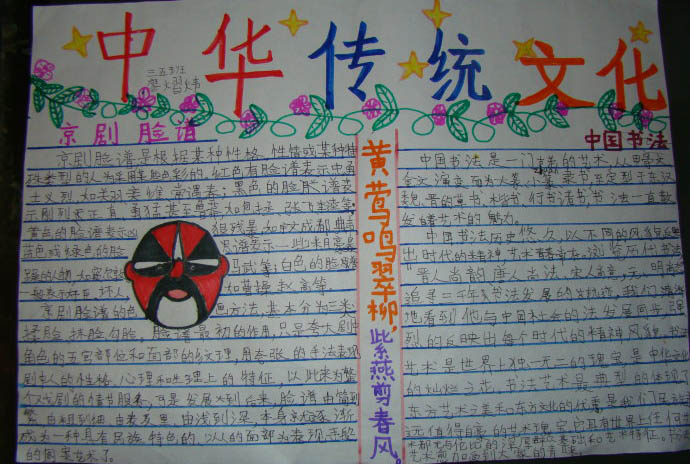 中华传统文化
三五班
京剧脸谱
京剧脸谱是根据某种性格、性情或某种特
殊类型的人为采用某些色彩的。红色有脸谱表示忠勇
士义烈,如关羽、姜维、常遇春;黑色的脸脸谱表
示刚烈、正直、勇猛甚至鲁莽,如包拯、张飞、李逵等;
黄色的脸谱表示凶狠残暴,如宇文成都、典韦
蓝色或绿色的脸
京剧脸谱的色画方法,基本分为三类:
揉脸、抹脸、勾脸。脸谱最初的作用,只是夸大剧中
角色的五官部位和面部的纹理,用夸张的手法表现
剧中人的性格、心理和生理上的特征,以此来为整
个戏剧的情节服务,可是发展到后来,脸谱由简到
繁、由粗到细、由表及里、由浅到深,本身就逐渐
成为一种具有民族特色的,以人的面部为表现手段
的图案艺术了。
黄莺鸣翠柳,
紫燕剪春风。
中国书法
中国书法是一门古老的艺术,从甲骨文、
金文演变而为大篆、小篆、隶书,至定型于东汉、
魏、晋的草书、楷书、行书诸书,书法一直散
发着艺术的魅力。
中国书法历史悠久,以不同的风貌反映
出时代的精神,艺术青春常在。浏览历代书法,
“晋人尚韵,唐人尚法,宋人尚意,元、明尚态”。
追寻三千年书法发展的轨迹,我们清晰
地看到他与中国社会的法发展同步,强
烈的反映出每个时代的精神风貌。书法
艺术是世界上独一无二的瑰宝,是中华文化
的灿烂之花。书法艺术最典型的体现了
东方艺术之美和东方文化的优秀,是我们民族永
远值得自豪的艺术瑰宝。它具有世界上任何
艺术都无与伦比的深厚群众基础和艺术特征。